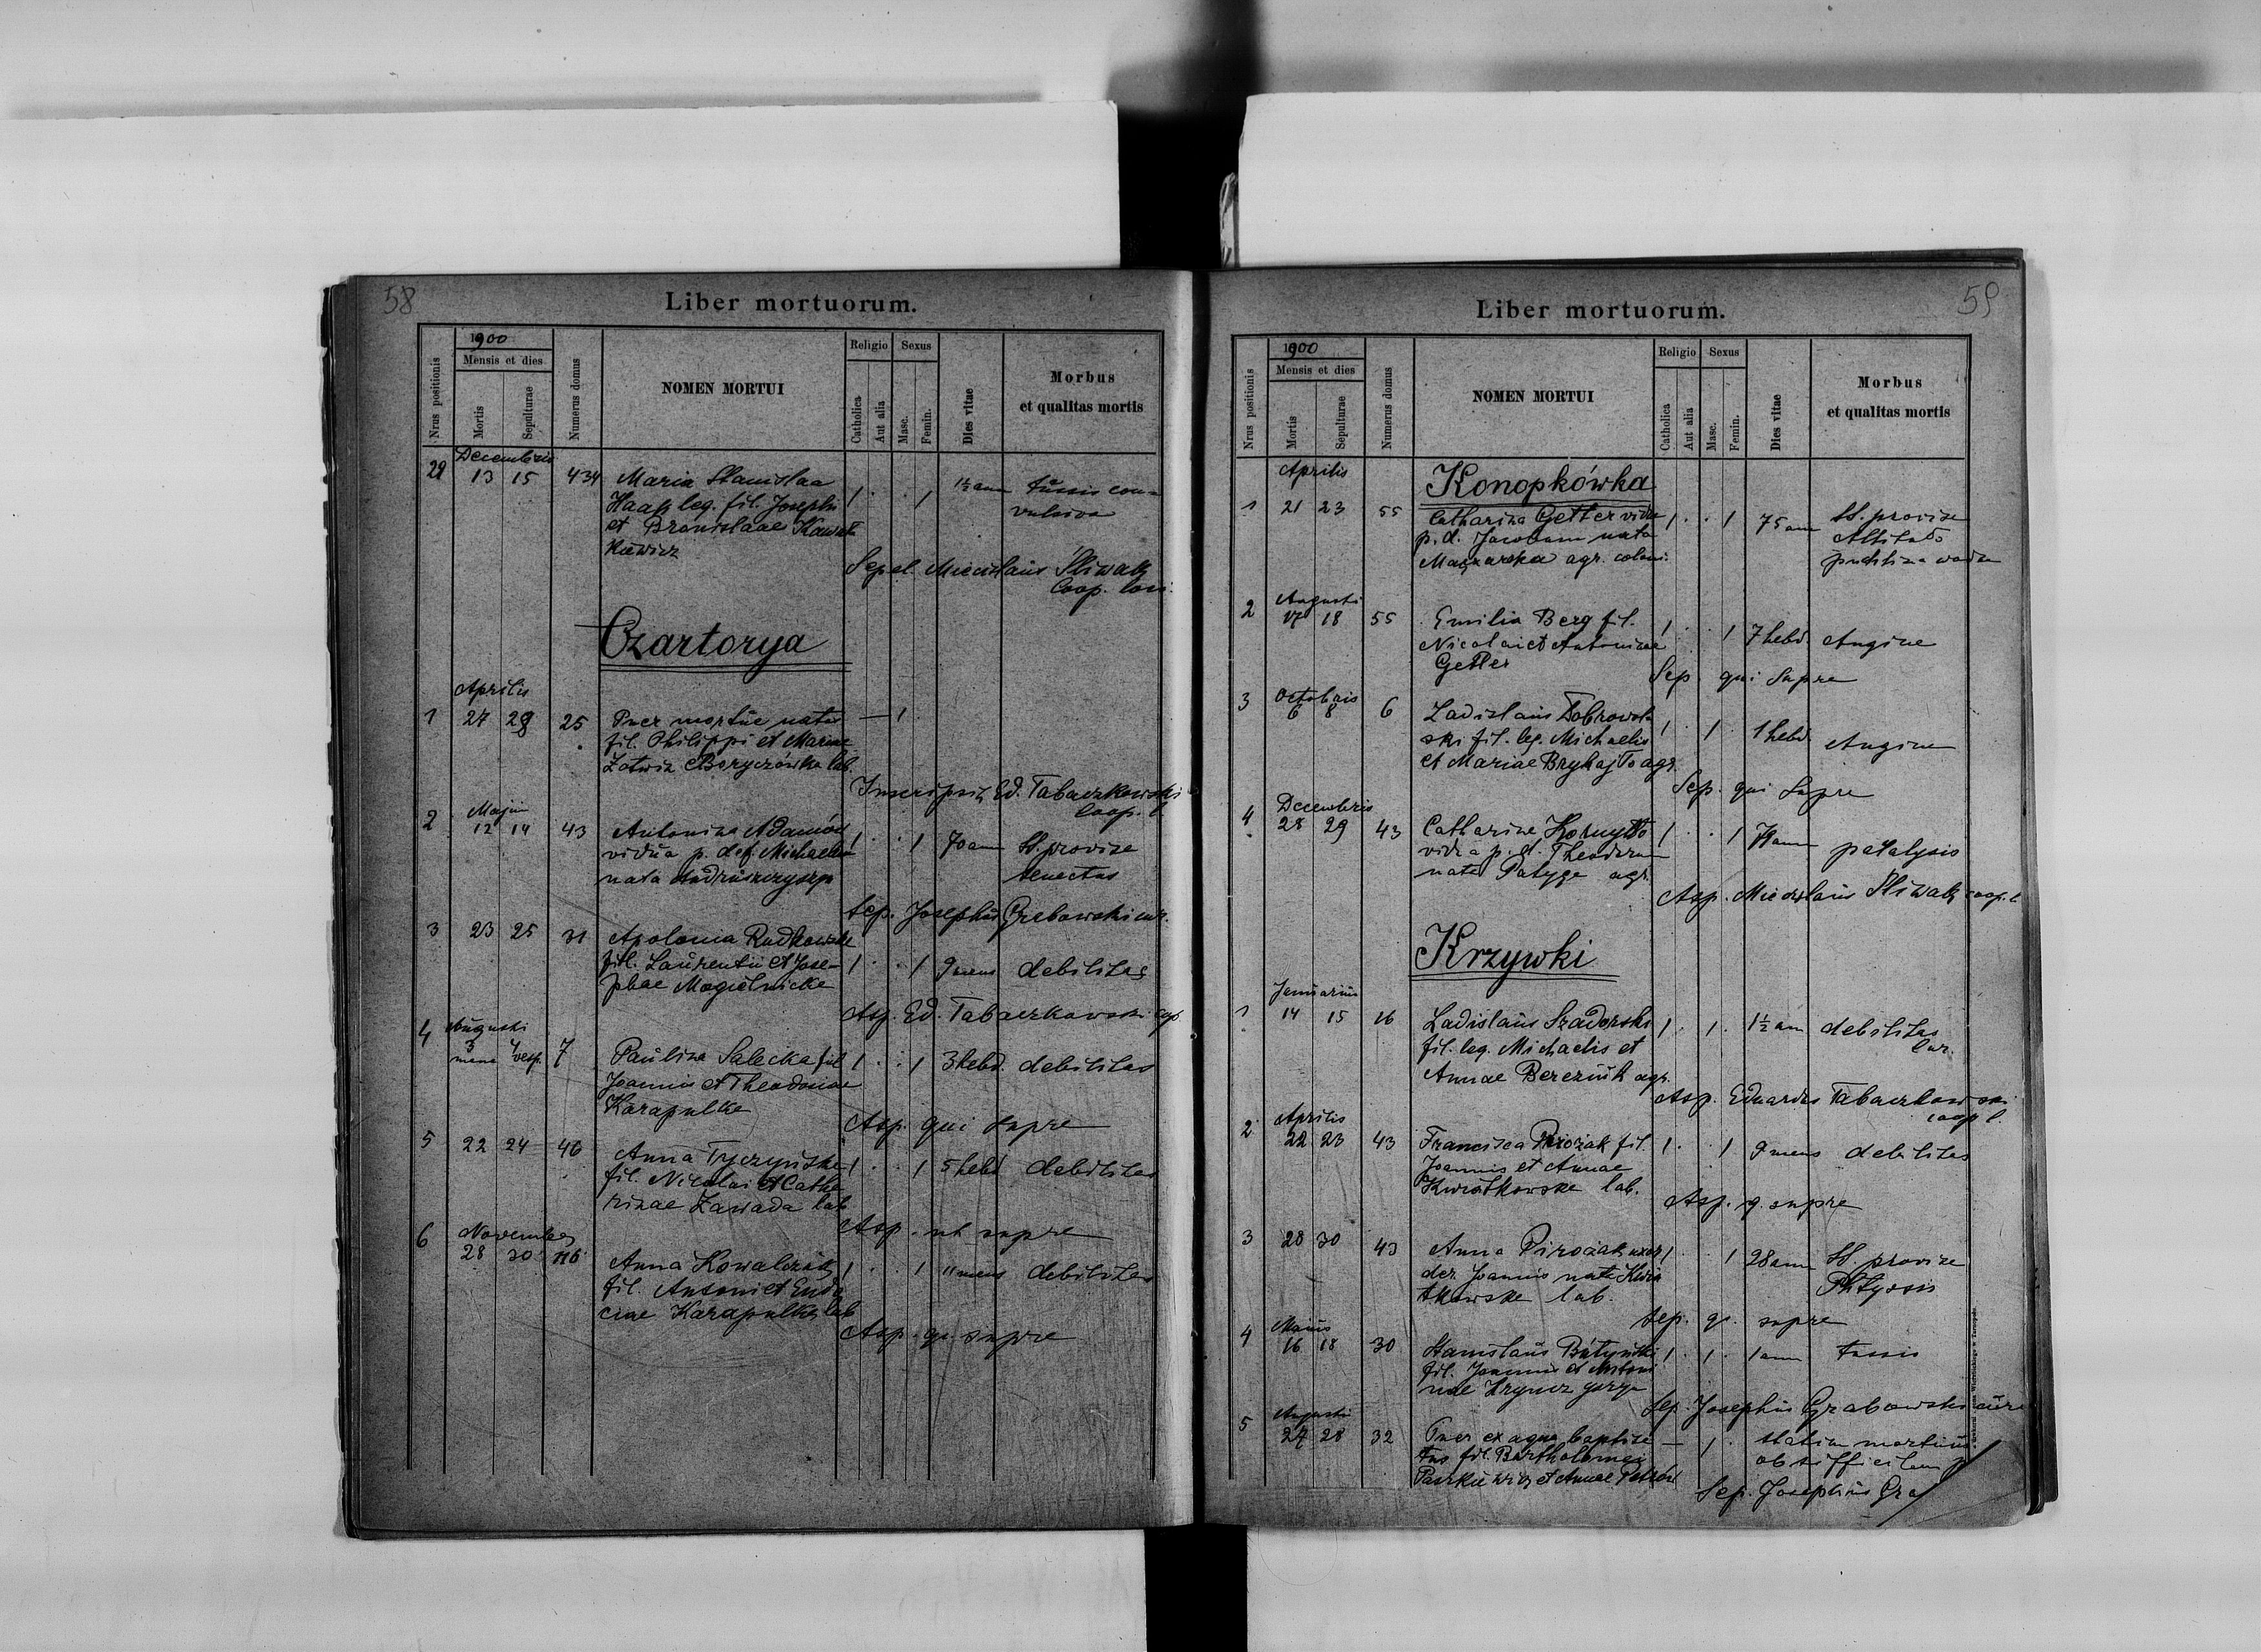 58
Liber mortuorum.
1900
Nrus positionis
Mensis et dies
Mortis
Sepulturae
Numerus domus
NOMEN MORTUI
Religio
Catholica
Aut alia
Sexus
Masc.
Femin.
Dies vitae
Morbus
et qualitas mortis
Decembris
29 13 15 434 Maria Stanislaa 1 . . 1 1½ ann tussis con-
Haak leg. fil. Josephi vulsiva
et Bronislaae
Sepel. Miecislaus Śliwak
Coop. loci.
Czartorya
Aprilis
1 27 28 25 Puer mortue natus — 1
fil. Philippi et Mariae
Boryczówka lab.
Inscripsit Ed. Tabaczkowski
Coop. l.
Maji
2 12 14 43 Antonina Adamów 1 . . 1 70 ann SS. provisa
vidua p. def. Michaelem senectus
nata
Sep. Josephus Grabowski cur.
3 23 25 31 Apolonia Rudkowska
fil. Laurentii et Jose- 1 . . 1 9 mens debilitas
phae Mogielnicka
Asp. Ed. Tabaczkowski cop.
Augusti
4 3 4 7 Paulina Salecka fil 1 . . 1 3 hebd. debilitas
mane vesp.
Joannis et Theodosiae
Karapulka
Asp. qui supra
5 22 24 46 Anna Tyczyńska 1 . . 1 5 hebd debilitas
fil. Nicolai et Catha
rinae Zawada lab
Asp. ut supra
Novembris
6 28 30 116 Anna Kowalczuk 1 . . 1 11 mens debilitas
fil. Antoni et Eudo
ciae Karapulka lab
Asp. q. supra
59
Liber mortuorum.
1900
Nrus positionis
Mensis et dies
Mortis
Sepulturae
Numerus domus
NOMEN MORTUI
Religio
Catholica
Aut alia
Sexus
Masc.
Femin.
Dies vitae
Morbus
et qualitas mortis
Aprilis
Konopkówka
1 21 23 55 Catharina Getter vidua 1 . . 1 75 ann SS. provisa
p. d. Jacobum nata
agr. puchlina wodna
Augusti
2 17 18 55 Emilia Berg fil. 1 . . 1 7 hebd. Angina
Nicolai et Antoninae
Getter
Sep. qui supra
Octobris
3 6 8 6 Ladislaus Dobrowol
ski fil. leg. Michaelis 1 . 1 . 1 hebd. Angina
et Mariae Brykajło agr.
Sep. qui supra
Decembris
4 28 29 43 Catharina 1 . . 1 ann paralysis
vidua p. d. Theodorum
nata Patyga agr.
Asp. Miecislaus Śliwak coop. l
Krzywki
Januarius
1 14 15 16 Ladislaus Szadorski 1 . 1 . 1½ ann debilitas
fil. leg. Michaelis et
Annae Bereziuk agr.
Asp. Eduardus Tabaczkowski
coop l.
Aprilis
2 22 23 43 Francisca Pirożak fil. 1 . . 1 9 mens debilitas
Joannis et Annae
Kwiatkowska lab.
Asp. q. supra
3 28 30 43 Anna Pirożak uxor 1 . . 1 28 ann SS provisa
der. Joannis nata Kwia Phtyssis
tkowska lab.
Sep. q. supra
Maius
4 16 18 30 Stanislaus Butyński 1 . 1 . 1 ann tussis
fil. Joannis et Antoni
nae
Sep. Josephus Grabowski cur.
Augusti
5 27 28 32 Puer ex aqua baptisa — 1 . statim mortuus
tus fil. Bartholomei ob
Paszkiewicz et Annae Petrów
Sep. Josephus Gra